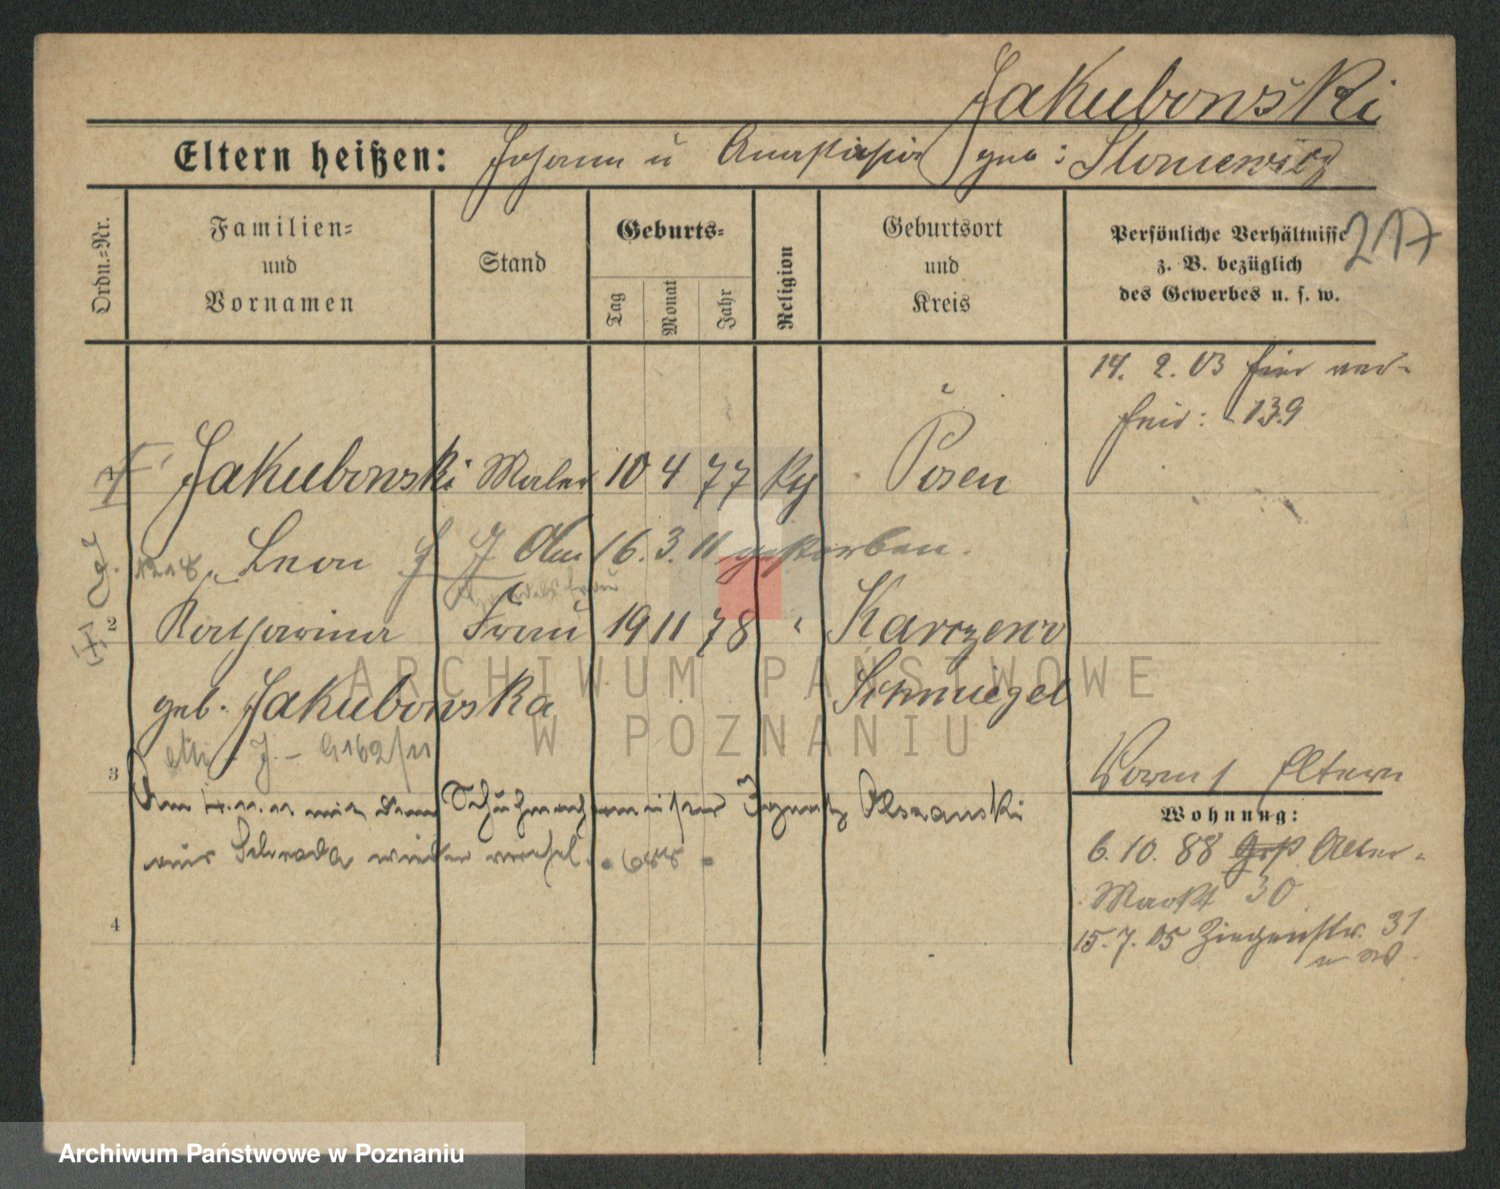 Jakubowski
Eltern heißen: Johann u Anastasia geb: Sloniewicz
Ordn.-Nr.
Familien- und Vornamen
Stand
Geburts-
Tag
Monat
Jahr
Religion
Geburtsort und Kreis
Persönliche Verhältnisse z. B. bezüglich des Gewerbes u. s. w.
217
14. 2. 03 hier ver-
heir: 139
Jakubowski Maler 10 4 77 Posen
Leon Am 16. 3. 11 gestorben.
2 Katharina Frau 19 11 78 " Karczewo
geb. Jakubowska Schmiegel
162/11
Eltern
3 mit dem Schuhmachermeister Ignatz
aus Schroda wieder vereh. 688
Wohnung:
6. 10. 88 Alter-
Markt 30
15. 7. 05 Ziegenstr. 31
4
ARCHIWUM PAŃSTWOWE
W POZNANIU
Archiwum Państwowe w Poznaniu